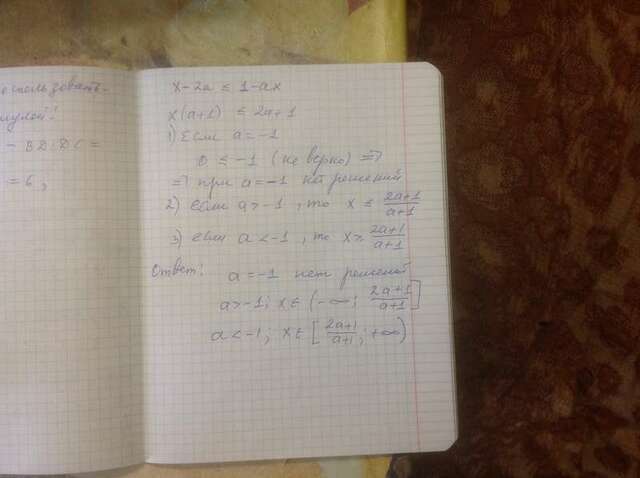 - BD·DC =
= 6,
x - 2a ≤ 1 - ax
x(a+1) ≤ 2a+1
1) Если a = -1
0 ≤ -1 (не верно) ⇒
⇒ при a = -1 нет решений
2) если a > -1, то x ≤ (2a+1)/(a+1)
3) если a < -1, то x ≥ (2a+1)/(a+1)
Ответ: a = -1 нет решений
a > -1; x ∈ (-∞; (2a+1)/(a+1)]
a < -1; x ∈ [(2a+1)/(a+1); +∞)